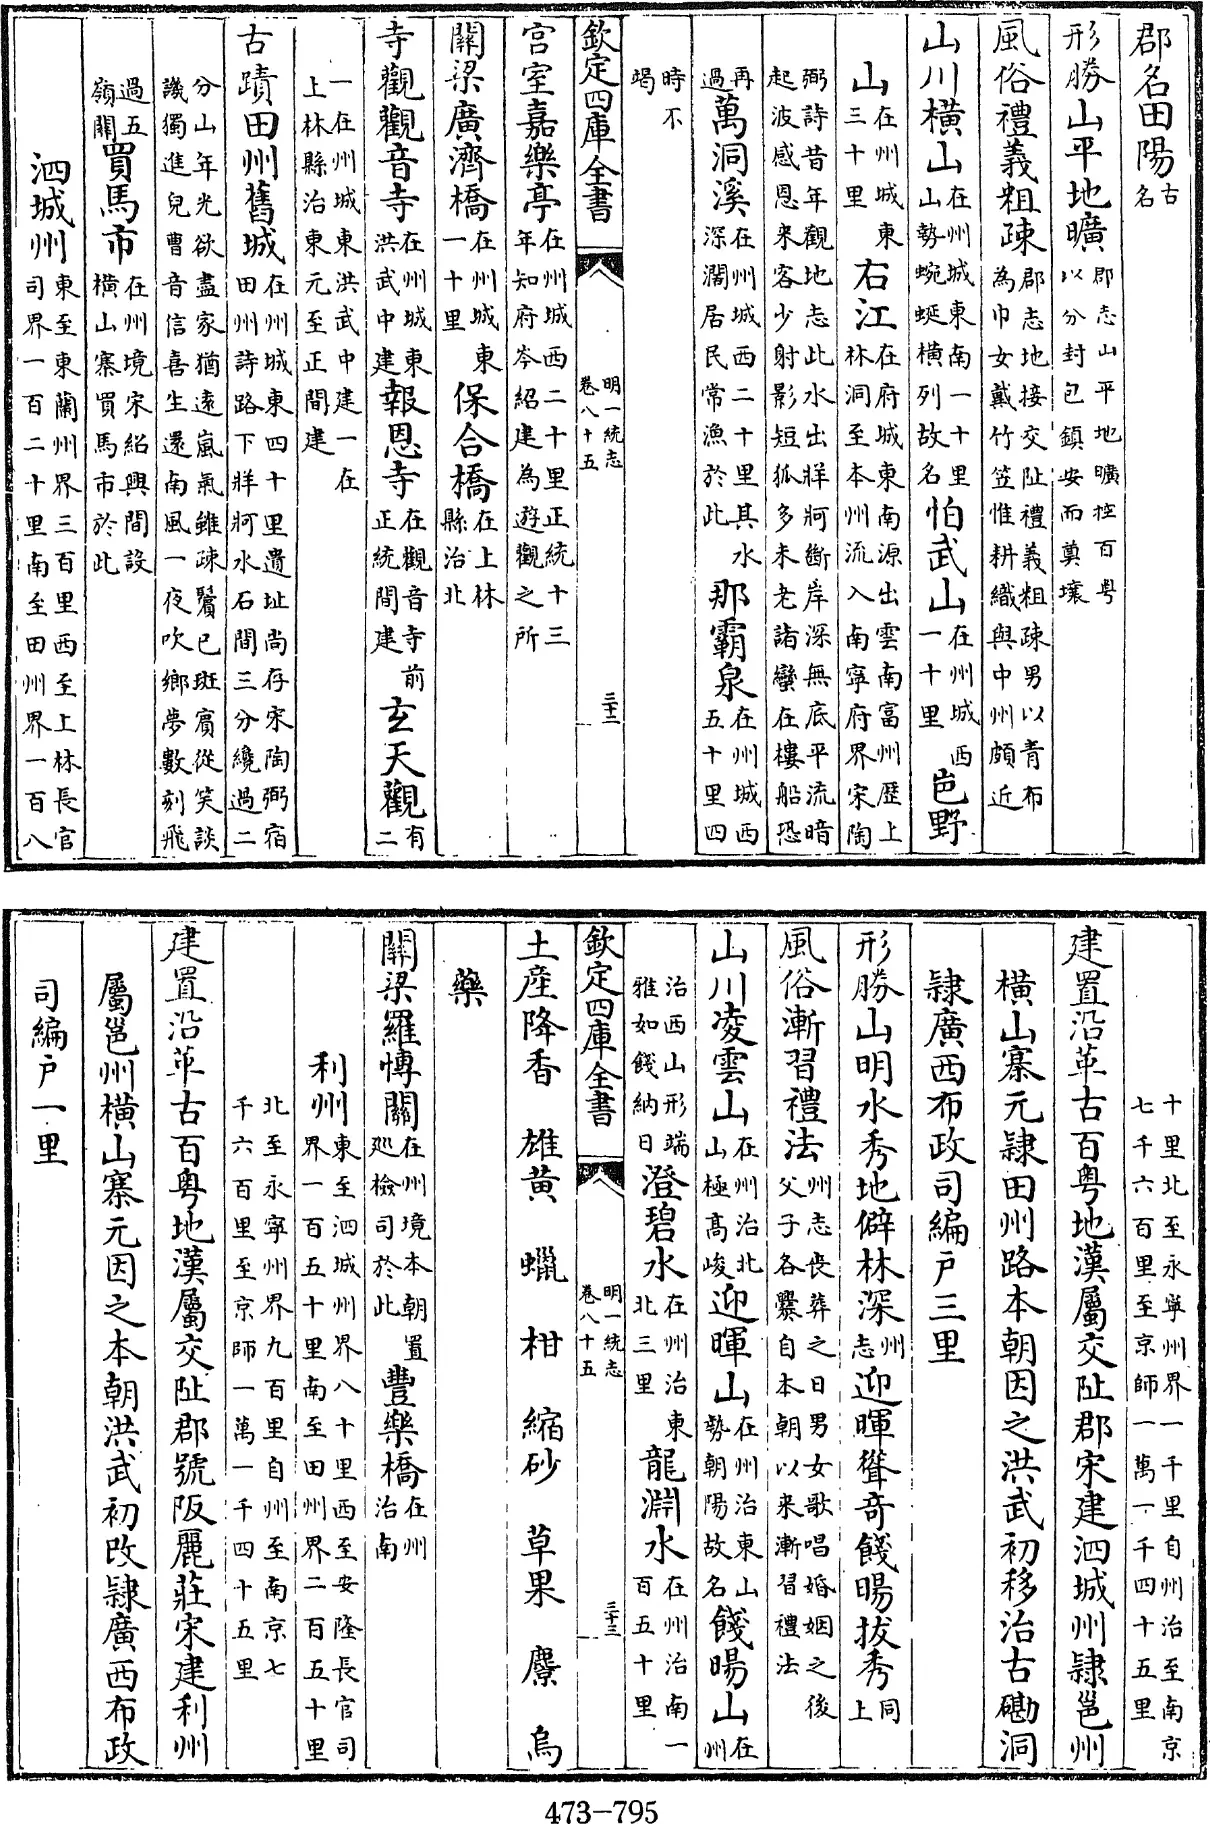 郡名田陽古名
形勝山平地曠郡志山平地曠控百粤以分封已鎮安而奠壤
風俗禮義粗疎郡志地接交阯禮義粗疎男以青布為巾女戴竹笠惟耕織與中州頗近
山川橫山在州城東南一十里山勢蜿蜒橫列故名怕武山在州城西一十里岜野
山在州城東三十里右江在府城東南源出雲南富州歷上林洞至本州流入南寧府界宋陶
弼詩昔年觀地志此水出牂牁斷岸深無底平流暗起波感恩来客少射影短狐多未老諸蠻在樓船恐
再過萬洞溪在州城西二十里其水深濶居民常漁於此那霸泉在州城西五十里四
時不竭
欽定四庫全書 明一統志卷八十五 三十二
宫室嘉樂亭在州城西二十里正統十三年知府岑紹建為遊觀之所
關梁廣濟橋在州城東一十里保合橋在上林縣治北
寺觀觀音寺在州城東洪武中建報恩寺在觀音寺前正統間建玄天觀有二
一在州城東洪武中建一在上林縣治東元至正間建
古蹟田州舊城在州城東四十里遺址尚存宋陶弼宿田州詩路下牂牁水石間三分纔過二
分山年光欲盡家猶遠嵐氣雖疎鬢已斑賓從笑談譏獨進兒曹音信喜生還南風一夜吹鄉夢數刻飛
過五嶺關買馬市在州境宋紹興間設橫山寨買馬市於此
泗城州東至東蘭州界三百里西至上林長官司界一百二十里南至田州界一百八
十里北至永寧州界一千里自州治至南京七千六百里至京師一萬一千四十五里
建置沿革古百粤地漢屬交阯郡宋建泗城州隷邕州
橫山寨元隷田州路本朝因之洪武初移治古磡洞
隷廣西布政司編户三里
形勝山明水秀地僻林深州志迎暉聳奇餞暘拔秀同上
風俗漸習禮法州志丧葬之日男女歌唱婚姻之後父子各爨自本朝以来漸習禮法
山川凌雲山在州治北山極髙峻迎暉山在州治東山勢朝陽故名餞暘山在州
治西山形端雅如餞納日澄碧水在州治東北三里龍淵水在州治南一百五十里
欽定四庫全書 明一統志卷八十五 三十三
土産降香 雄黄 蠟 柑 縮砂 草果 麖 烏
藥
關梁羅博關在州境本朝置廵檢司於此豐樂橋在州治南
利州東至泗城州界八十里西至安隆長官司界一百五十里南至田州界二百五十里
北至永寧州界九百里自州至南京七千六百里至京師一萬一千四十五里
建置沿革古百粤地漢屬交阯郡號阪麗莊宋建利州
屬邕州橫山寨元因之本朝洪武初改隷廣西布政
司編户一里
473-795